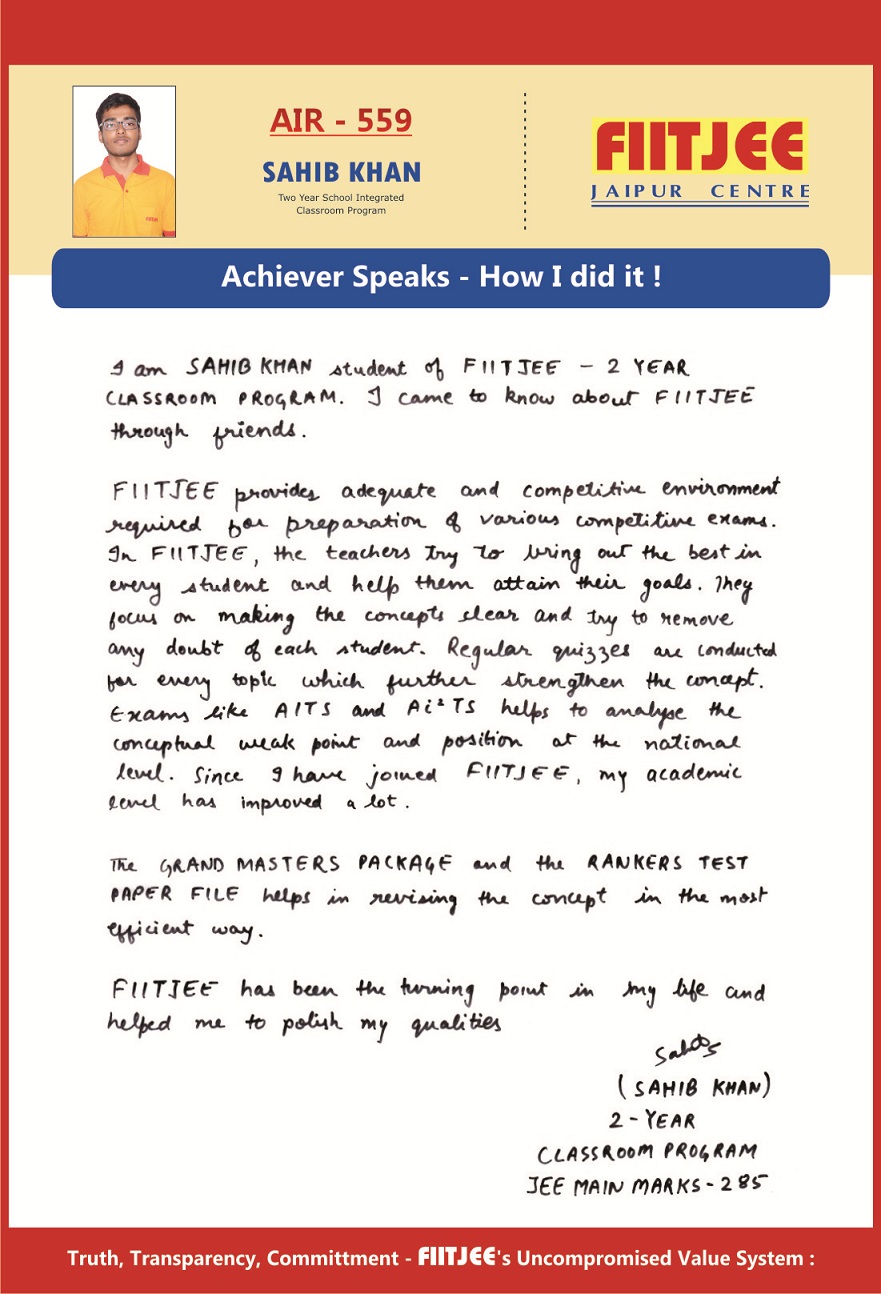 AIR - 559
SAHIB KHAN
Two Year School Integrated
Classroom Program
FIITJEE
JAIPUR CENTRE
Achiever Speaks - How I did it !
I am SAHIB KHAN student of FIITJEE - 2 YEAR
CLASSROOM PROGRAM. I came to know about FIITJEE
through friends.
FIITJEE provides adequate and competitive environment
required for preparation of various competitive exams.
In FIITJEE, the teachers try to bring out the best in
every student and help them attain their goals. They
focus on making the concepts clear and try to remove
any doubt of each student. Regular quizzes are conducted
for every topic which further strengthen the concept.
Exams like AITS and Ai²TS helps to analyse the
conceptual weak point and position at the national
level. Since I have joined FIITJEE, my academic
level has improved a lot.
The GRAND MASTERS PACKAGE and the RANKERS TEST
PAPER FILE helps in revising the concept in the most
efficient way.
FIITJEE has been the turning point in my life and
helped me to polish my qualities
(SAHIB KHAN)
2-YEAR
CLASSROOM PROGRAM
JEE MAIN MARKS-285
Truth, Transparency, Committment - FIITJEE's Uncompromised Value System :